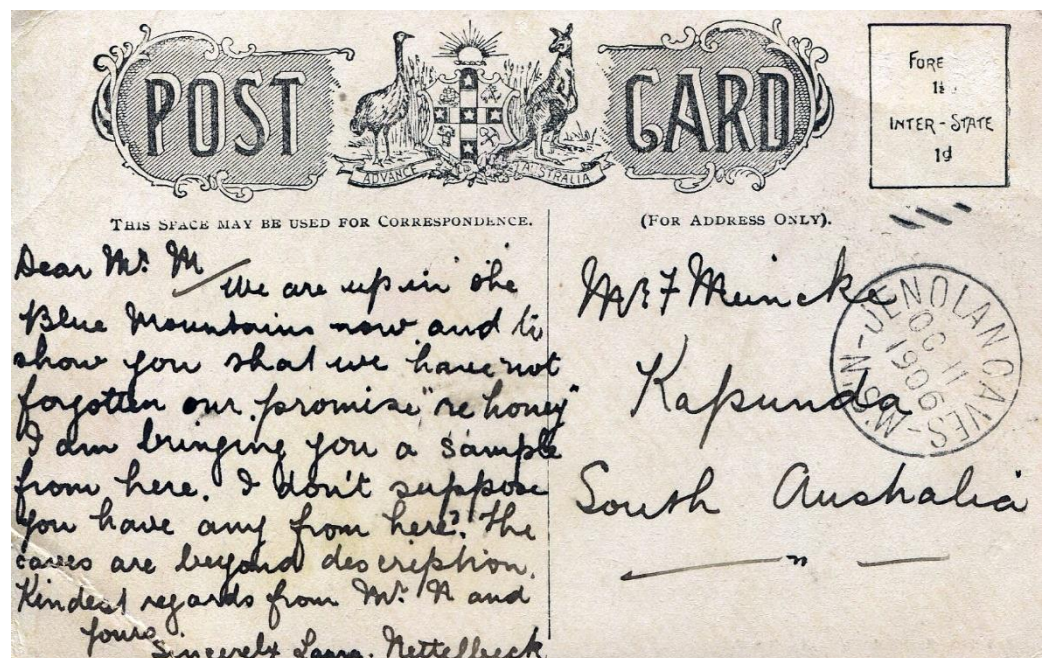 POST CARD
ADVANCE AUSTRALIA
FORE
1½
INTER-STATE
1d
THIS SPACE MAY BE USED FOR CORRESPONDENCE.
(FOR ADDRESS ONLY).
Dear Mr. M
We are up in the
Blue Mountains now and to
show you that we have not
forgotten our promise "re honey"
I am bringing you a sample
from here. I don't suppose
you have any from here? The
caves are beyond description.
Kindest regards from Mr. N and
yours
Sincerely Laura. Nettelbeck
Mr F Meincke
Kapunda
South Australia
JENOLAN CAVES - N.S.W
OC 11
1906